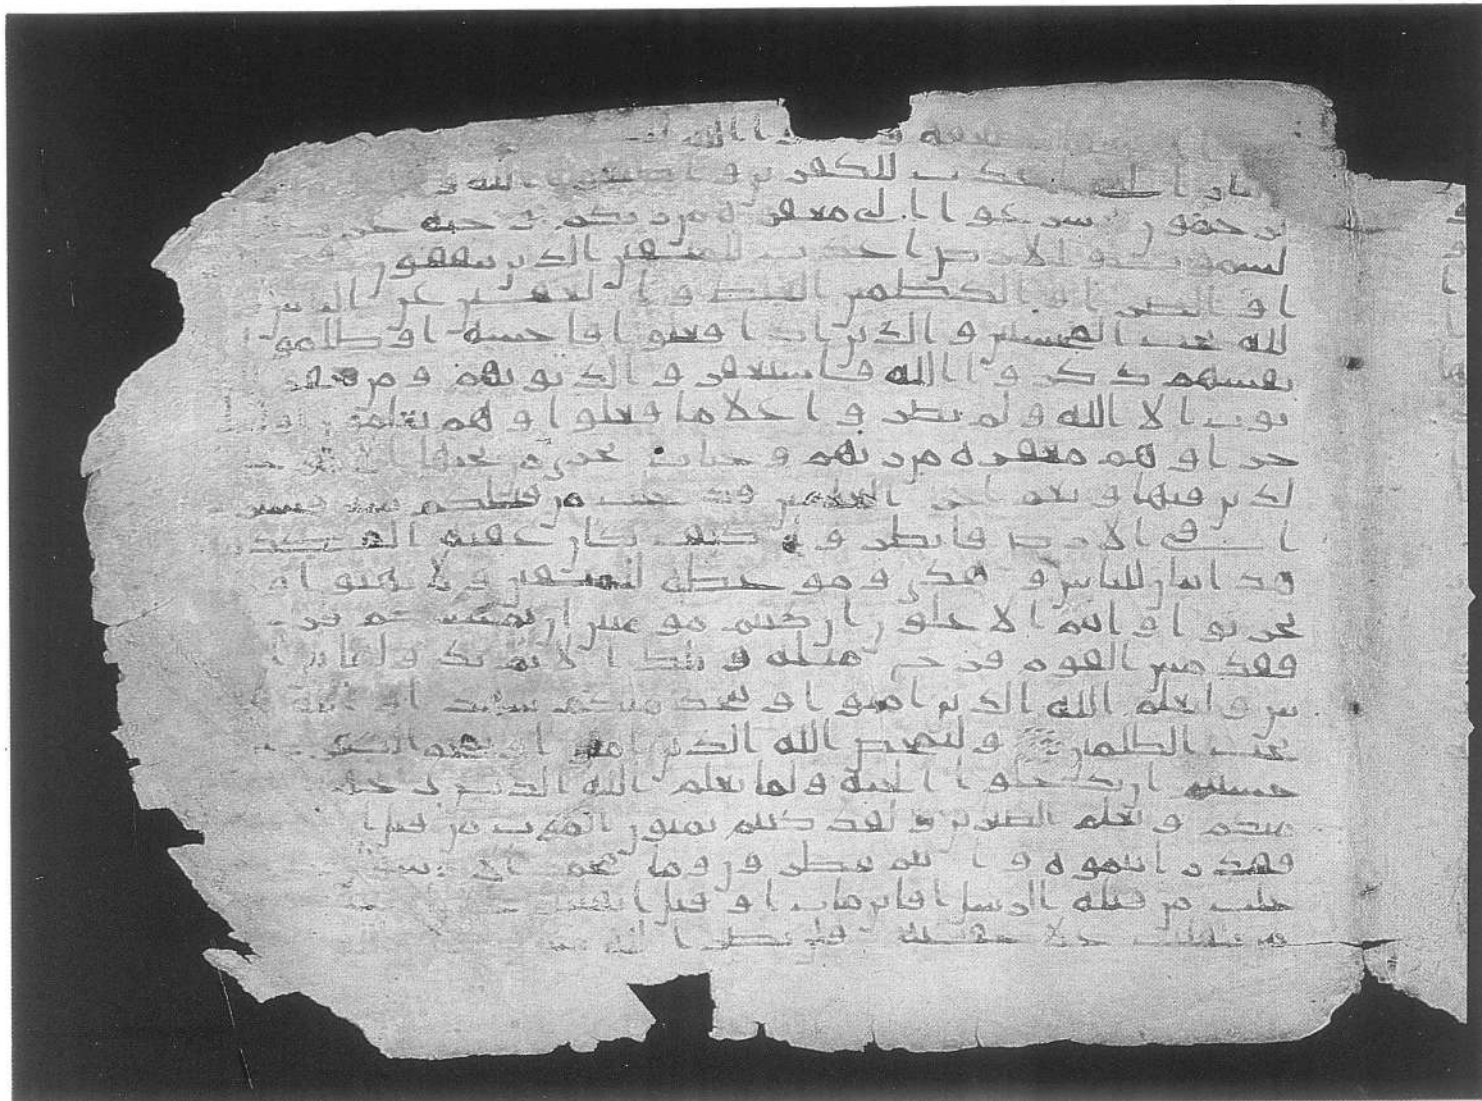 مضعفة واتقوا الله لـ
النار التي اعدت للكفرين واطيعوا الله و
ترحمون وسرعوا الى مغفرة من ربكم وجنة عر
لسموت والارض اعدت للمتقين الذين ينفقون
ا والضرا والكظمين الغيظ والعافين عن الناس
لله يحب المحسنين والذين اذا فعلوا فاحشة او ظلموا
نفسهم ذكروا الله فاستغفروا لذنوبهم ومن يغفر
نوب الا الله ولم يصروا على ما فعلوا وهم يعلمون اولئك
جزاوهم مغفرة من ربهم وجنات تجري من تحتها الا
لدين فيها ونعم اجر العملين قد خلت من قبلكم سنن فسير
ا في الارض فانظروا كيف كان عقبة المكذ
هذا بيان للناس وهدى وموعظة للمتقين ولا تهنوا و
تحزنوا وانتم الاعلون ان كنتم مومنين ان يمسسكم قر
فقد مس القوم قرح مثله وتلك الايام نداولها بين ا
س وليعلم الله الذين امنوا ويتخذ منكم شهدا والله
يحب الظلمين وليمحص الله الذين امنوا ويمحق الكفر
حسبتم ان تدخلوا الجنة ولما يعلم الله الذين جهد
منكم ويعلم الصبرين ولقد كنتم تمنون الموت من قبل ا
فقد رايتموه وانتم تنظرون وما محمد الا رسو
خلت من قبله الرسل افاين مات او قتل انقلبتم
من ينقلب على عقبيه فلن يضر الله